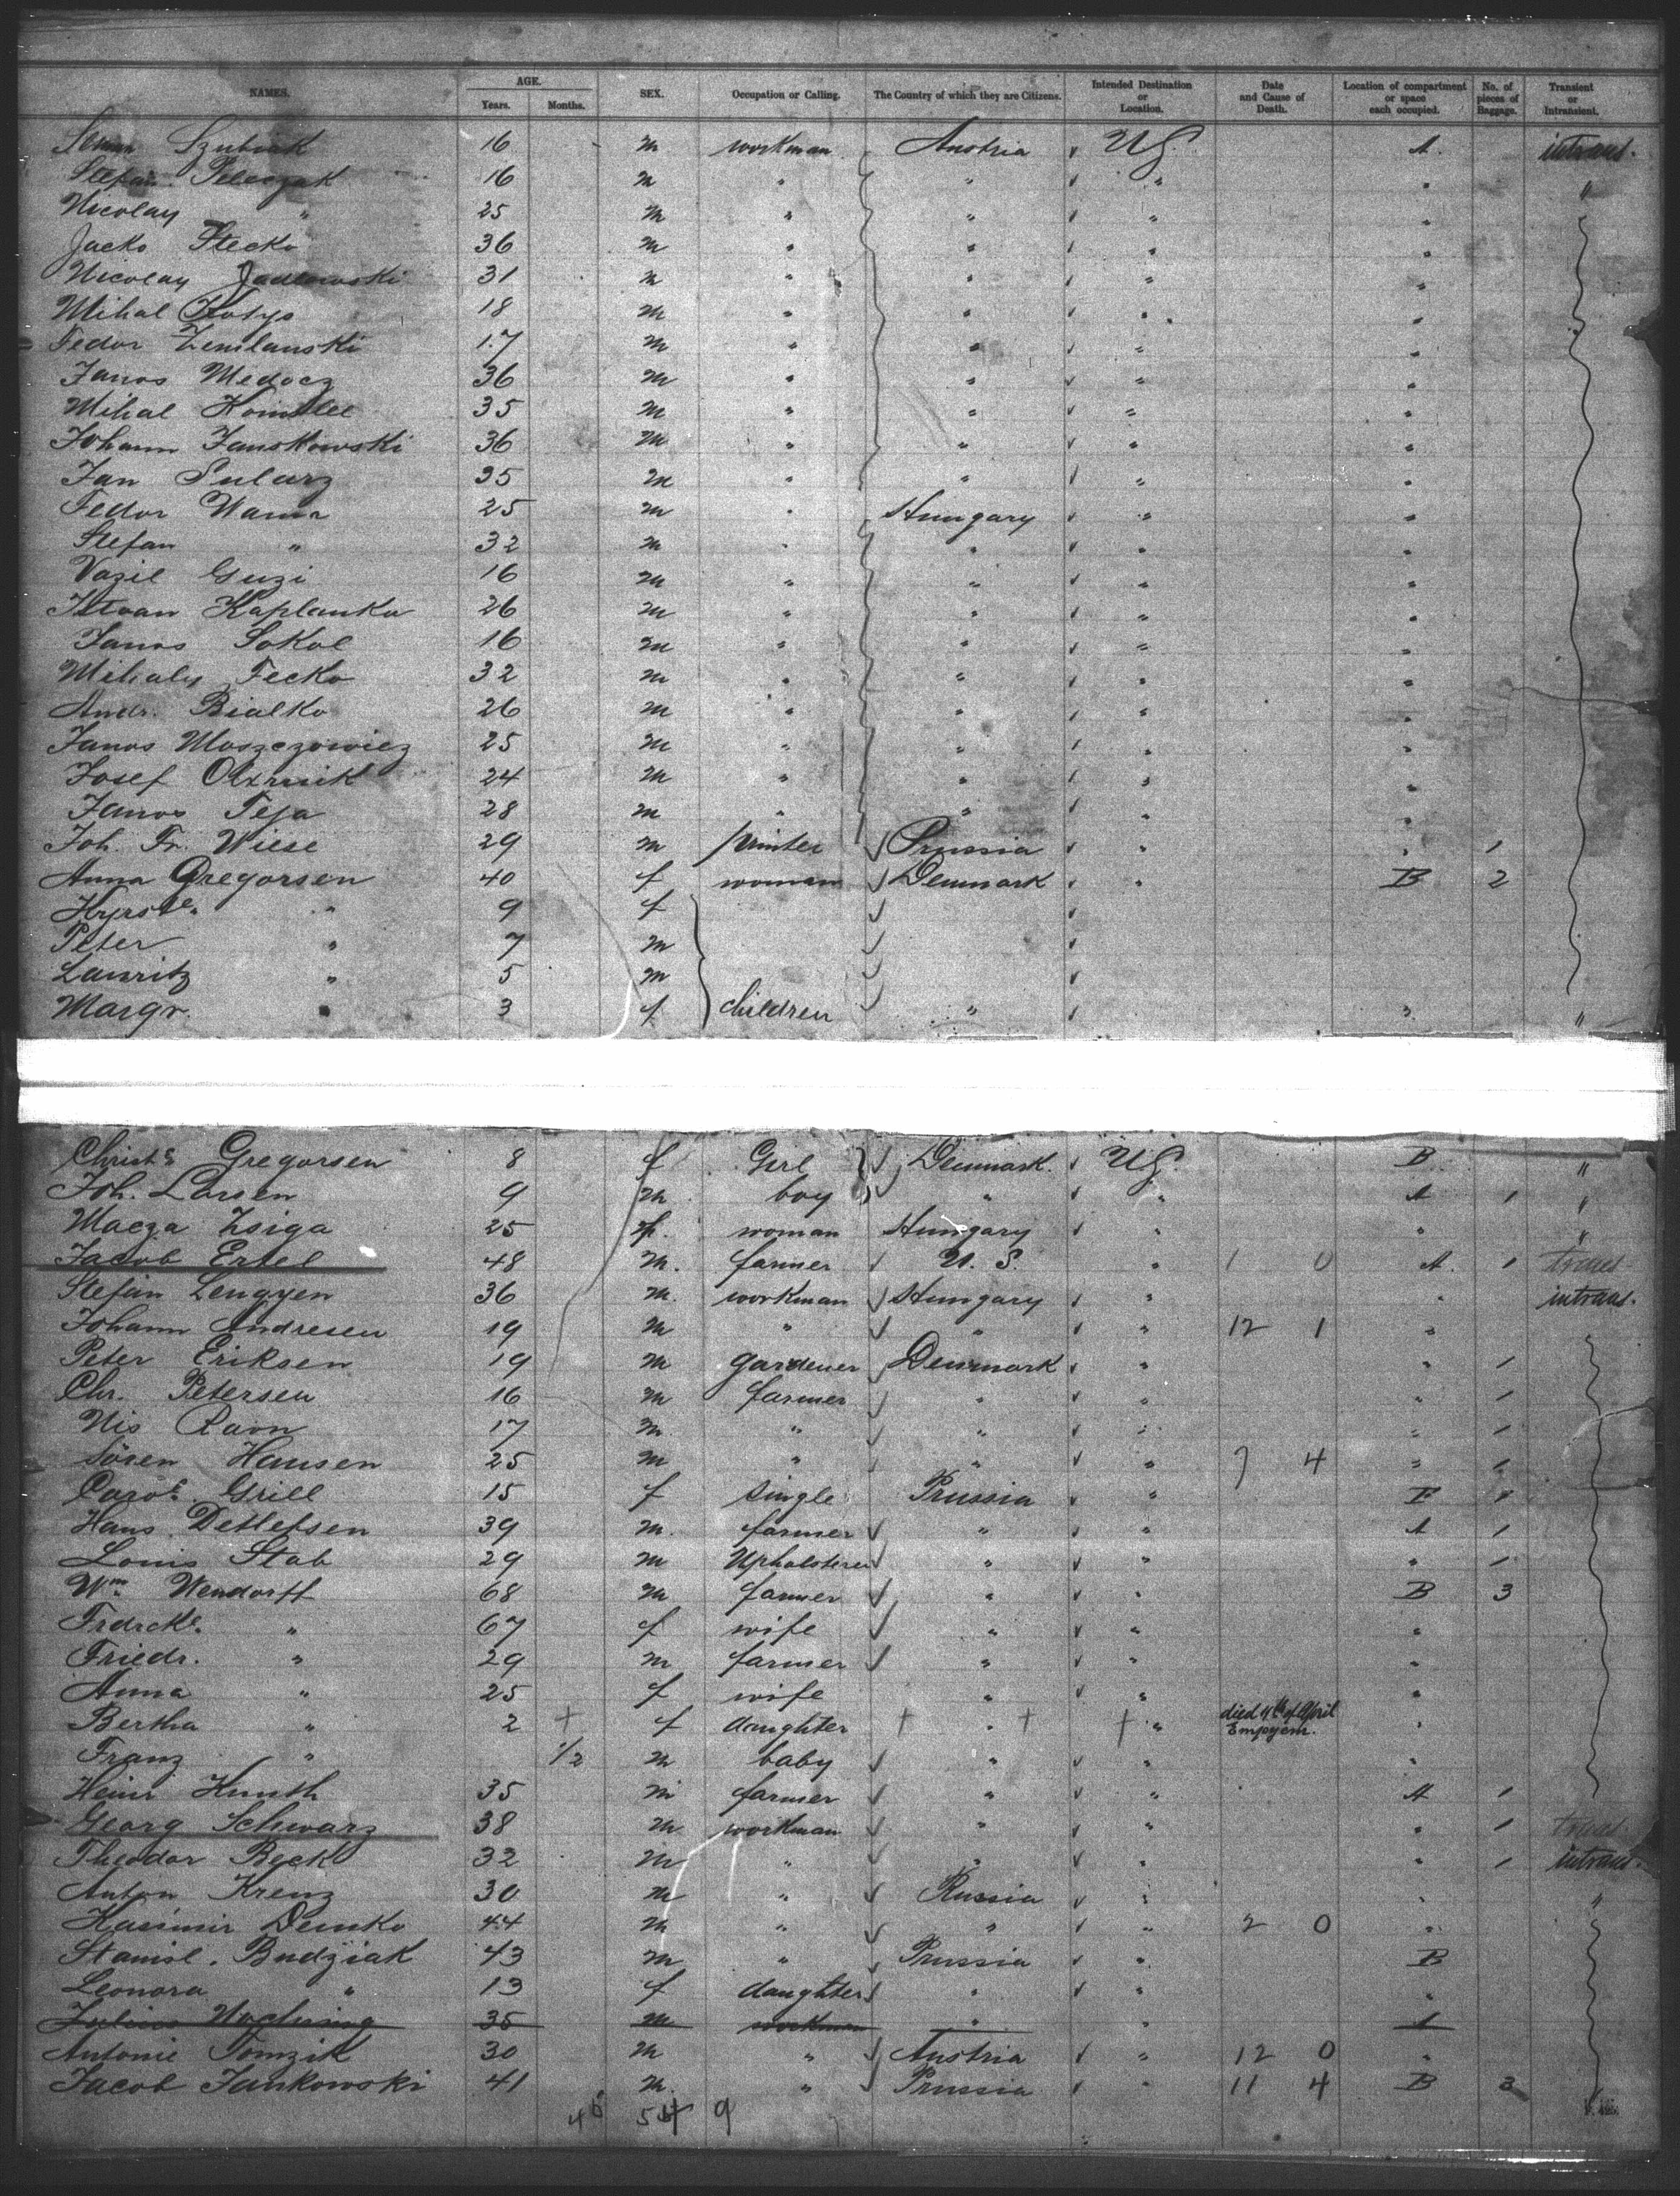 NAMES. AGE. Years. Months. SEX. Occupation or Calling. The Country of which they are Citizens. Intended Destination or Location. Date and Cause of Death. Location of compartment or space each occupied. No. of pieces of Baggage. Transient or Intransient.
Szubiak 16 m workman Austria US A. intrans.
Stefan Peleszak 16 m " " " " "
Nicolay " 25 m " " " "
Jacko Stecko 36 m " " " "
Nicolay Jadlowski 31 m " " " "
Mihal Kotys 18 m " " " "
Fedor Zemlanski 17 m " " " "
Janos Medocz 36 m " " " "
Mihal 35 m " " " "
Johann Janskowski 36 m " " " "
Jan Sularz 35 m " " " "
Fedor Wama 25 m " Hungary " "
Stefan " 32 m " " " "
Vazil Guzi 16 m " " " "
Istvan Kaplanka 26 m " " " "
Janos Sokol 16 m " " " "
Mihaly Fecko 32 m " " " "
Andr. Bialko 26 m " " " "
Janos Moszczowicz 25 m " " " "
Josef 24 m " " " "
Janos Teja 28 m " " " "
Joh. Fr. Wiese 29 m Prussia " " 1
Anna Gregorsen 40 f woman Denmark " B 2
Kyrste. " 9 f
Peter " 7 m
Lauritz " 5 m
Margr. " 3 f children " " "
Christe Gregorsen 8 f Girl Denmark. US. B "
Joh. Larsen 9 m boy " " A 1 "
Macza Zsiga 25 f. woman Hungary " " "
Jacob Ertel 48 m. farmer U. S. " 1 0 A. 1 trans
Stefan Lengyen 36 m. workman Hungary " " intrans.
Johann Andresen 19 m " " " 12 1 "
Peter Eriksen 19 m gardener Denmark " " 1
Chr. Petersen 16 m farmer " " " 1
Nis Ravn 17 m " " " " 1
Sören Hansen 25 m " " " 7 4 " 1
Carole. Grill 15 f single Prussia "
Hans Detlefsen 39 m. farmer " " A 1
Louis Stab 29 m Upholsterer " " " 1
Wm. Wendorff 68 m farmer " " B 3
Frdrcke. " 67 f wife " " "
Friedr. " 29 m farmer " " "
Anna " 25 f wife " " "
Bertha " 2 + f daughter + " + + " died 4th of April Empyem. "
Franz " 1/2 m baby " " "
Heinr Knuth 35 m farmer " " A 1
Georg Schwarz 38 m workman " " " 1 trans.
Theodor Beck 32 m " " " " 1 intrans.
Anton Krenz 30 m " Russia " " "
Kasimir Demko 44 m " " " 2 0 "
Stanisl. Budziak 43 m " Prussia " B
Leonora " 13 f daughter " " "
Julius 35 m workman " " A
Antonie Tomzik 30 m " Austria " 12 0 "
Jacob Jankowski 41 m. " Prussia " 11 4 B 3
9